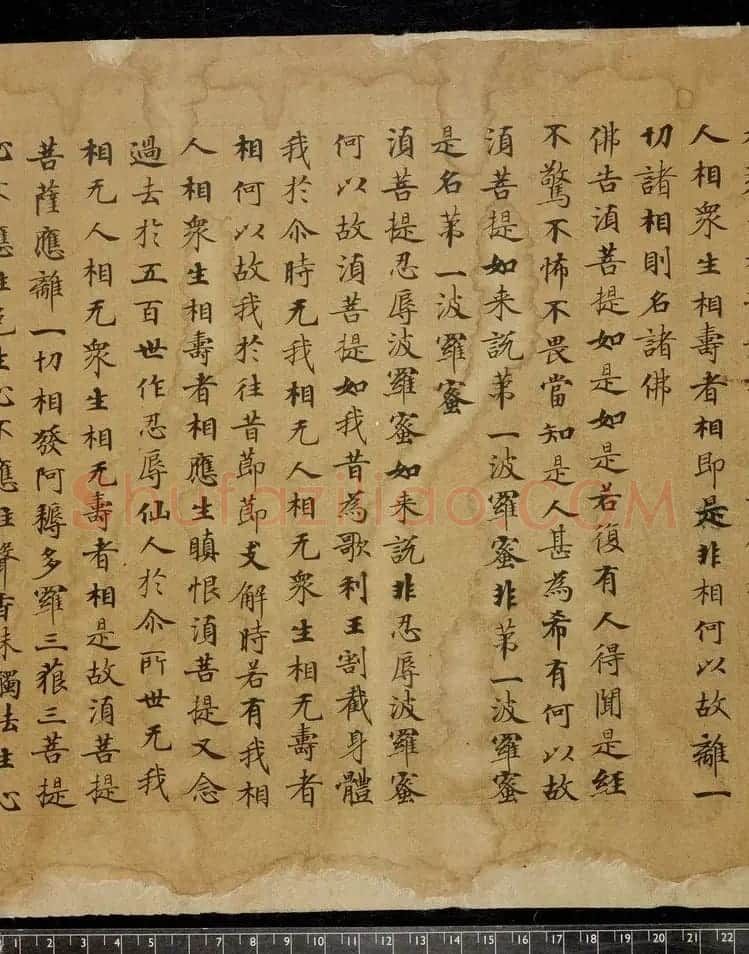 人相衆生相壽者相即是非相何以故離一
切諸相則名諸佛
佛告湏菩提如是如是若復有人得聞是經
不驚不怖不畏當知是人甚為希有何以故
湏菩提如来說苐一波羅蜜非苐一波羅蜜
是名苐一波羅蜜
湏菩提忍辱波羅蜜如来說非忍辱波羅蜜
何以故湏菩提如我昔為歌利王割截身體
我於尒時无我相无人相无衆生相无壽者
相何以故我於往昔節節支解時若有我相
人相衆生相壽者相應生瞋恨湏菩提又念
過去於五百世作忍辱仙人於尒所世无我
相无人相无衆生相无壽者相是故湏菩提
菩薩應離一切相發阿耨多羅三藐三菩提
心不應住色生心不應住聲香味觸法生心
Shufaziliao.COM
1 2 3 4 5 6 7 8 9 10 11 12 13 14 15 16 17 18 19 20 21 22